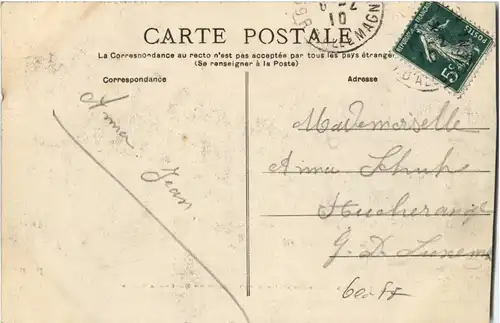 CARTE POSTALE
La Correspondance au recto n'est pas acceptée par tous les pays étrange
(Se renseigner à la Poste)
Correspondance
Adresse
5c
10
Anna
Jean
Mademoiselle
Anna Schuh
G. D. Luxem